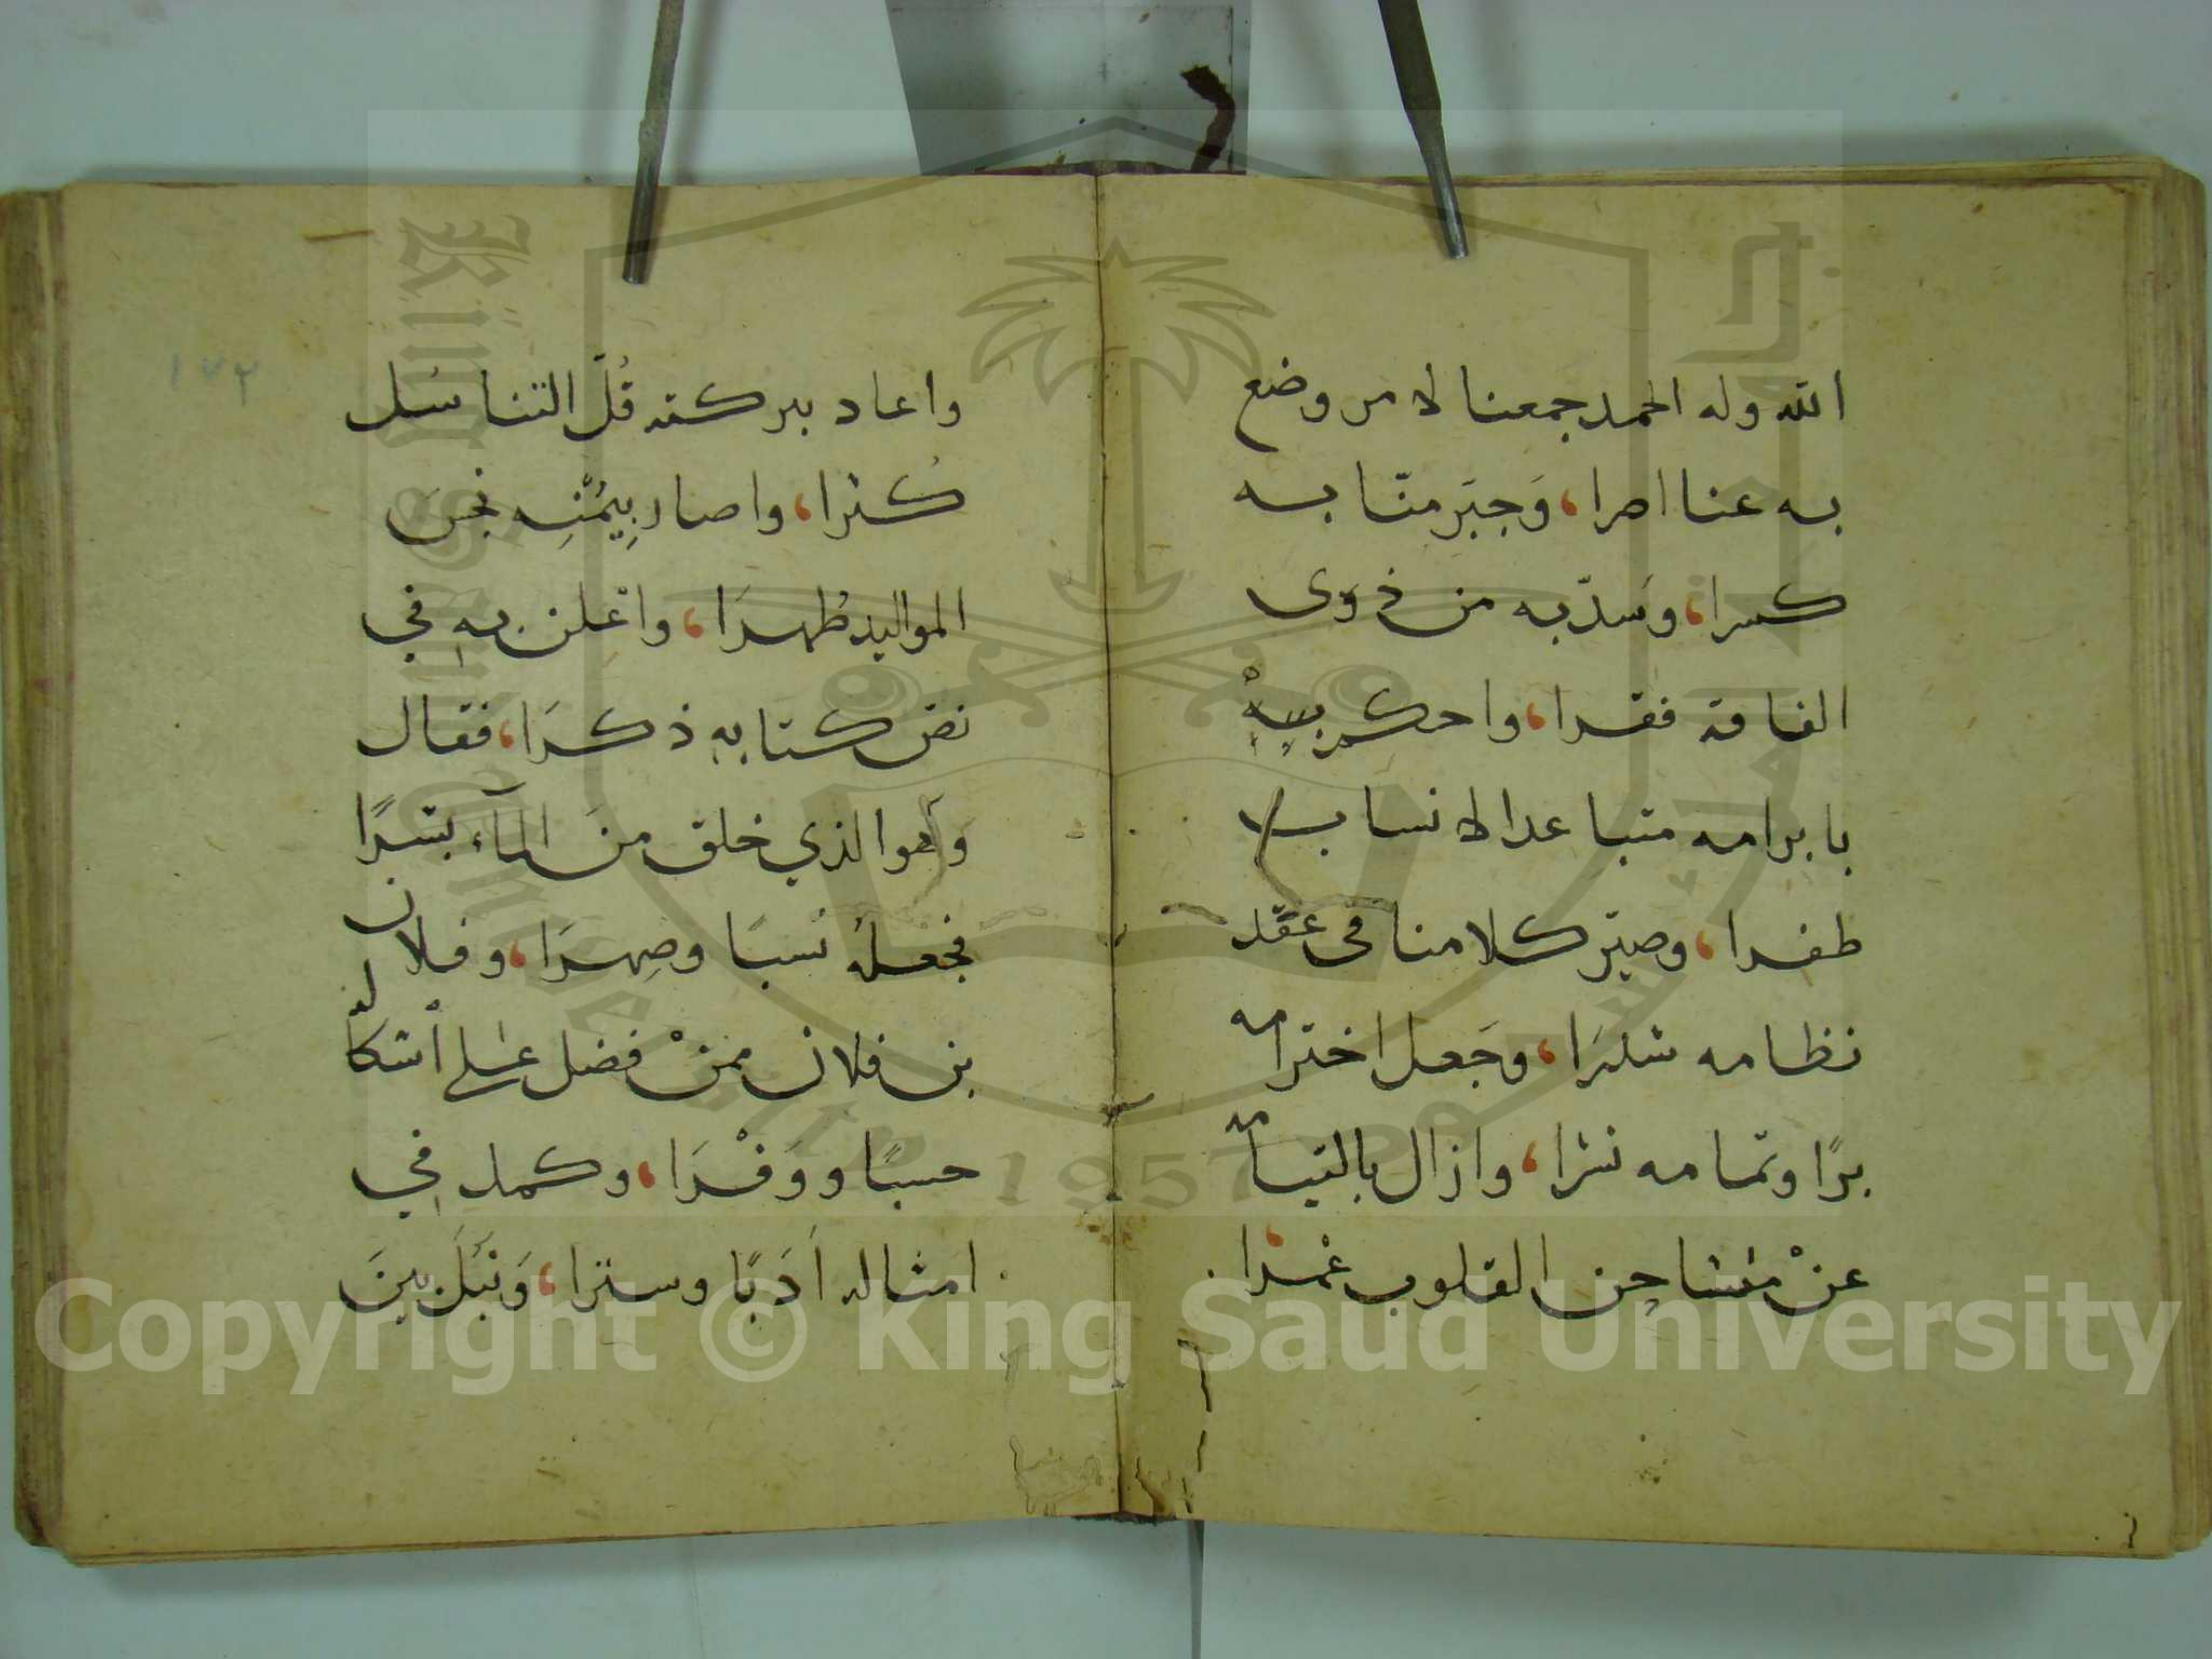 الله وله الحمد جمعنا لامر وضع
به عنا اصرا، وَجبَر منّا به
كسرا، وسَدّ به من ذوى
الفاقة فقرا، واحكم بهْ
بابرامه متباعد الانساب
ظفرا، وصيّر كلامنا فى عقد
نظامه شذرَا، وجَعل اخترامه
برًا وتمامه نثرا، وازال بالتيامه
عنْ مشاحِن القلوب غمرا،
واعاد ببركته قُلّ التناسُل
كُثرا، واصار بِيمُنِه نجسَ
المواليد طُهرَا، واعلن بهِ في
نص كتابهِ ذكرَا، فقال
وَهوا لذي خلق منَ المآء بشرًا
فجعلهُ نسبًا وصِهرَا، وفلان
بن فلان ممنْ فضل على أشكاله
حسبًا ووَفْرَا، وكمل في
امثاله اَدَبًا وسترا، وَنَبُلَ بينَ
١٧٢
Copyright © King Saud University
1957
King Saud University